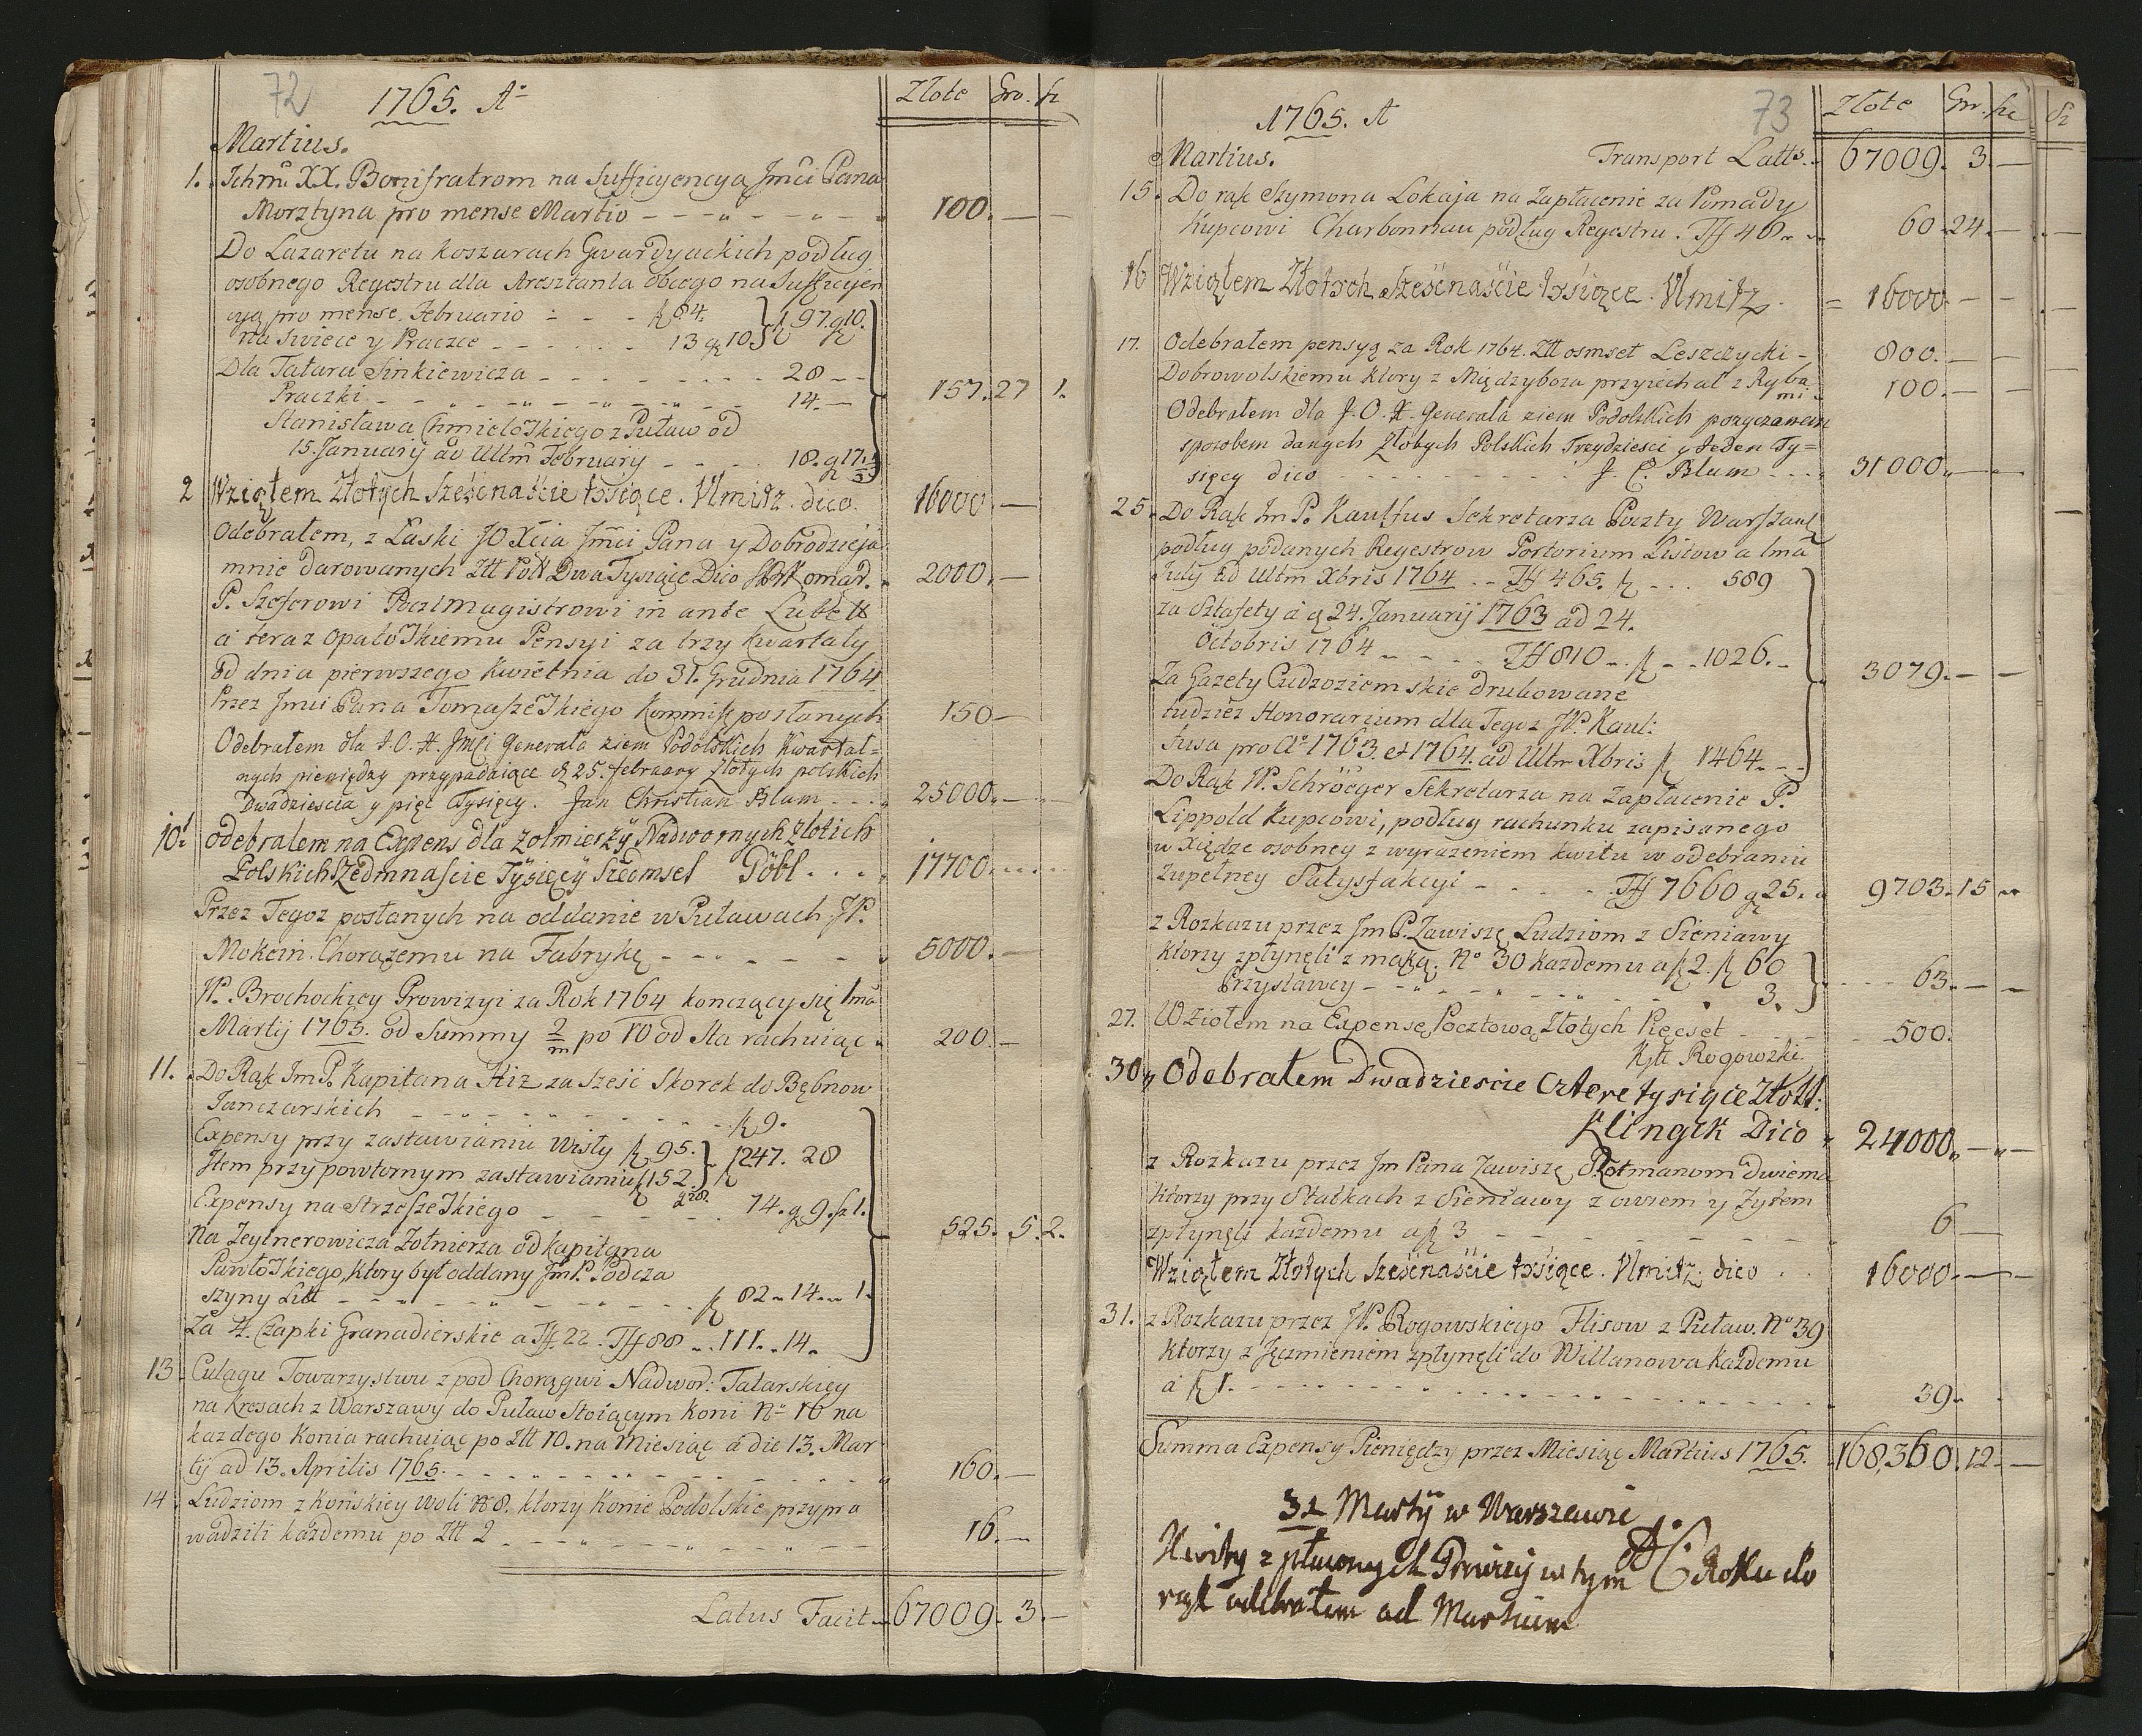 72
1765. Ao
Złote Gro. sz
Martius.
1. Ichm. XX. Bonifratrom na Sufficyencyą Jmci Pana
Morsztyna pro mense Martio 100. —
Do Lazaretu na koszarach Gwardyackich podług
osobnego Regestru dla Aresztanta obcego na Sufficyen
cyą pro mense Februario 84. 97. g 10.
na swiece y Praczce 13 g 10
Dla Tatara Sinkiewicza 28
Praczki 14. 157. 27 1.
Stanisława Chmielo kiego z Puław od
15. Januarij ad Ultm February 18. g 17.
2 Wziąłem Złotych Sześcnaście tysięce. Ulmitz. dico. 16000. —
Odebrałem, z Łaski JO Xcia Jmci Pana y Dobrodzieja
mnie darowanych Ztt Pol Dwa Tysiące Dico 2000. —
P. Szeferowi Poczmagistrowi in ante Lubel
a teraz Opatowskiemu Pensyi za trzy kwartały
od dnia pierwszego Kwietnia do 31. Grudnia 1764
Przez Jmci Pana Tomaszewskiego Kommiss posłanych 150 —
Odebrałem dla J. O. X. Jmci Generała ziem Podolskich Kwartal=
nych pieniędzy przypadaiące d 25. february Złotych polskich
Dwadziescia y pięć Tysięcy. Jan Christian Blum 25000. —
10. odebralem na Expens dla Zolnierzÿ Nadwornych Zlotich
Polskich Szedmnascie Tÿsięcÿ Szedmset Döbl 17700.
Przez Tegoz posłanych na oddanie w Puławach JP.
Mokcin. Chorążemu na Fabrykę 5000. —
JP. Brochockiey Prowizyi za Rok 1764 konczący się 1ma
Martij 1765. od Summy 2/m po 10 od Sta rachuiąc 200. —
11. Do Rąk Jm P. Kapitana Hiz za sześć Skorek do Bębnow
Janczarskich 9.
Expensy przy zastawianiu Wisły 95. 247. 28
Item przy powtornym zastawianiu 152. g 28.
Expensy na Strzeszewskiego 74. g 9. sz 1. 525. 5. 2.
Na Zeylnerowicza Żołnierza od kapitana
Pawłowskiego, ktory był oddany Jm P. Podcza
szyny Litt 82 14 1
Za 4. Czapki Granadierskie a TH. 22. TH 88 111. 14.
13 Culagu Towarzystwu z pod Chorągwi Nadwor: Tatarskiey
na Kresach z Warszawy do Puław Stoiącym Koni No 16 na
kazdego Konia rachuiąc po Ztt 10. na Miesiąc a die 13. Mar
tij ad 13. Aprilis 1765. 160. —
14. Ludziom z Końskiey Woli No 8. ktorzy Konie Podolskie przypro
wadzili każdemu po Ztt 2 16. —
Latus Facit 67009. 3. —
73
1765. A
Złote Gr. sze
Martius. Transport Latts. 67009. 3. —
15. Do rąk Szymona Lokaja na Zapłacenie za Pomady
Kupcowi Charbonnau podług Regestru. TH 48 60. 24. —
16 Wziąłem Złotych Sześcnaście tysięce. Ulmitz. 16000. —
17. Odebrałem pensyą za Rok 1764. Ztt osmset Leszczycki 800. —
Dobrowolskiemu Ktory z Międzyboża przyiechał z Ryba
mi 100. —
Odebrałem dla J. O. X. Generała ziem Podolskich pozyczanem
sposobem danych Złotych Polskich Trzydziesci y Jeden Ty=
sięcy dico J. C. Blum 31000. —
25. Do Rąk Jm P. Kaulfus Sekretarza Poczty Warszaws
podług podanych Regestrow Portorium Listow a 1ma
July ad Ultm Xbris 1764 TH 465. 589
za Sztafety a d 24. Januarij 1763 ad 24.
Octobris 1764 TH 810 1026.
Za Gazety Cudzoziemskie drukowane 3079. —
tudziez Honorarium dla Tegoz JP. Kaul:
fusa pro Ao 1763. et 1764. ad Ultm Xbris 1464.
Do Rąk JP. Schröeger Sekretarza na Zapłacenie P.
Lippold Kupcowi, podług rachunku zapisanego
w Xiędze osobney z wyrażeniem kwitu w odebraniu
Zupełney Satysfakcyi TH 7660 g 25. 9703. 15
z Rozkazu przez Jm P. Zawiszę Ludziom z Sieniawy
ktorzy zpłynęli z mąką. No 30 każdemu a 2. 60
Przystawcy 3. 63. —
27. Wziołem na Expensę Pocztową Złotych Pięcset 500.
Rogowski
30 Odebrałem Dwadzieście Cztere tysiące Złott:
Klingik Dico 24000. —
z Rozkazu przez Jm Pana Zawiszę Rotmanom Dwiema
ktorzy przy Statkach z Sieniawy z owsem y Żytem
zpłynęli każdemu a 3 6 —
Wziąłem Złotych Sześcnaście tysięce. Ulmitz. dico 16000. —
31. z Rozkazu przez JP. Rogowskiego Flisow z Puław. No 39
ktorzy z Jęczmieniem zpłynęli do Willanowa każdemu
a 1. 39.
Summa Expensy Pieniędzy przez Miesiąc Martius 1765. 168,360. 12. —
31 Martÿ w Warszawie
Kwity z w tym Roku do
rąk odebrałem ad Martium